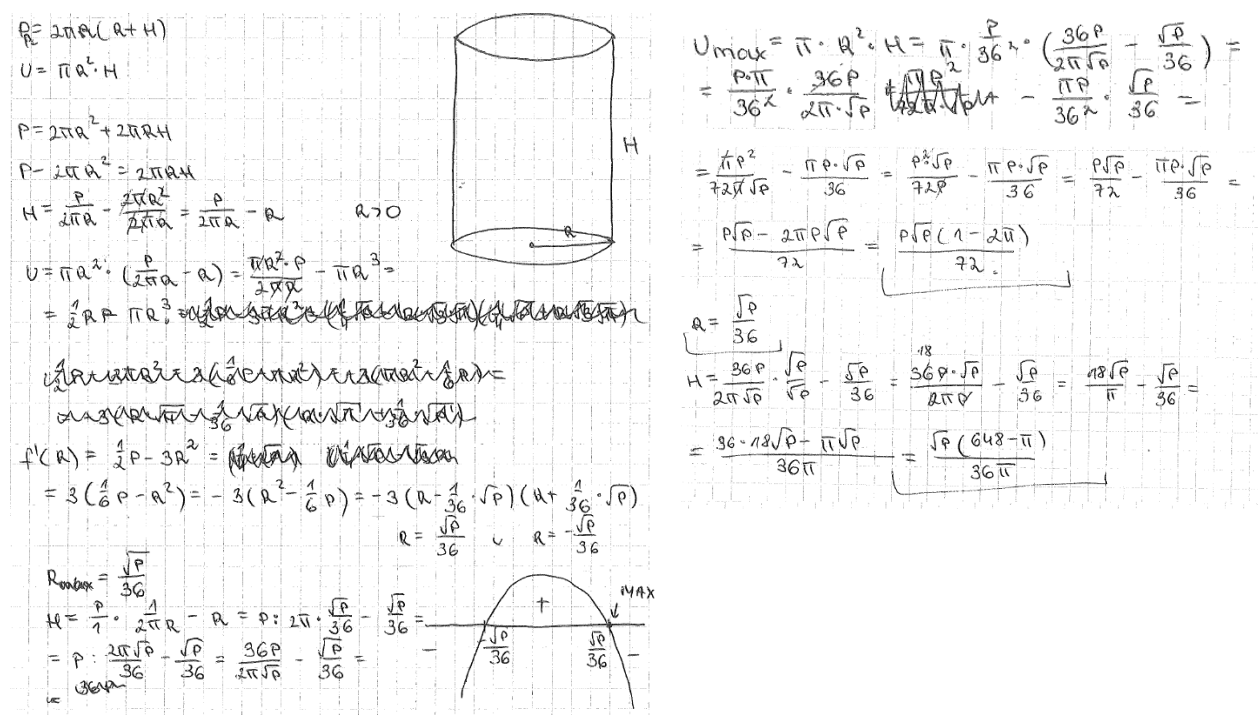 P = 2πR(R+H)
V = πR²·H
P = 2πR² + 2πRH
P - 2πR² = 2πRH
H = P/(2πR) - 2πR²/(2πR) = P/(2πR) - R    R>0
V = πR²·(P/(2πR) - R) = πR²·P/(2πR) - πR³ =
= ½RP - πR³
f'(R) = ½P - 3R² =
= 3(⅙P - R²) = -3(R² - ⅙P) = -3(R - 1/36·√P)(R + 1/36·√P)
R = √P/36 ∪ R = -√P/36
Rmax = √P/36
H = P/1 · 1/(2πR) - R = P : 2π·√P/36 - √P/36 =
= P : 2π√P/36 - √P/36 = 36P/(2π√P) - √P/36 =
=
H
R
MAX
+
- -
-√P/36 √P/36
Vmax = π·R²·H = π·P/36²·(36P/(2π√P) - √P/36) =
= P·π/36² · 36P/(2π·√P) - πP/36² · √P/36 =
= πP²/(72π√P) - πP·√P/36 = P²·√P/(72P) - πP·√P/36 = P√P/72 - πP·√P/36 =
= (P√P - 2πP√P)/72 = P√P(1-2π)/72.
R = √P/36
H = 36P/(2π√P) · √P/√P - √P/36 = 18 36P·√P/(2πP) - √P/36 = 18√P/π - √P/36 =
= (36·18√P - π√P)/(36π) = √P(648-π)/(36π)